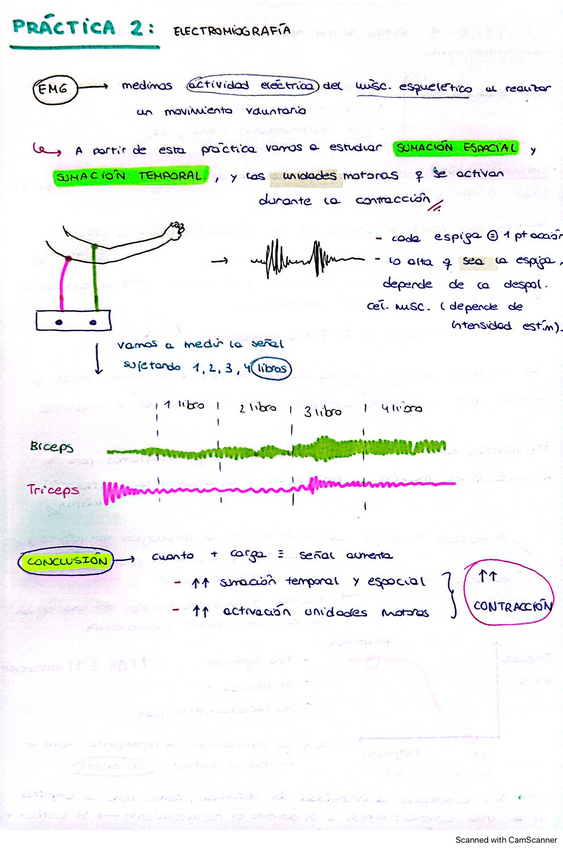 PRÁCTICA 2: ELECTROMIOGRAFÍA
EMG → medimos actividad eléctrica del músc. esquelético al realizar
un movimiento voluntario
↳ A partir de esta práctica vamos a estudiar SUMACIÓN ESPACIAL y
SUMACIÓN TEMPORAL, y las unidades motoras q se activan
durante la contracción
→ - cada espiga ≡ 1 pt acción
- lo alta q sea la espiga,
depende de la despol.
cél. musc. (depende de
intensidad estím).
vamos a medir la señal
sujetando 1, 2, 3, 4 libros
1 libro 2 libro 3 libro 4 libro
Biceps
Triceps
CONCLUSIÓN → cuanto + carga ≡ señal aumenta
- ↑↑ sumación temporal y espacial
- ↑↑ activación unidades motoras
↑↑
CONTRACCIÓN
Scanned with CamScanner